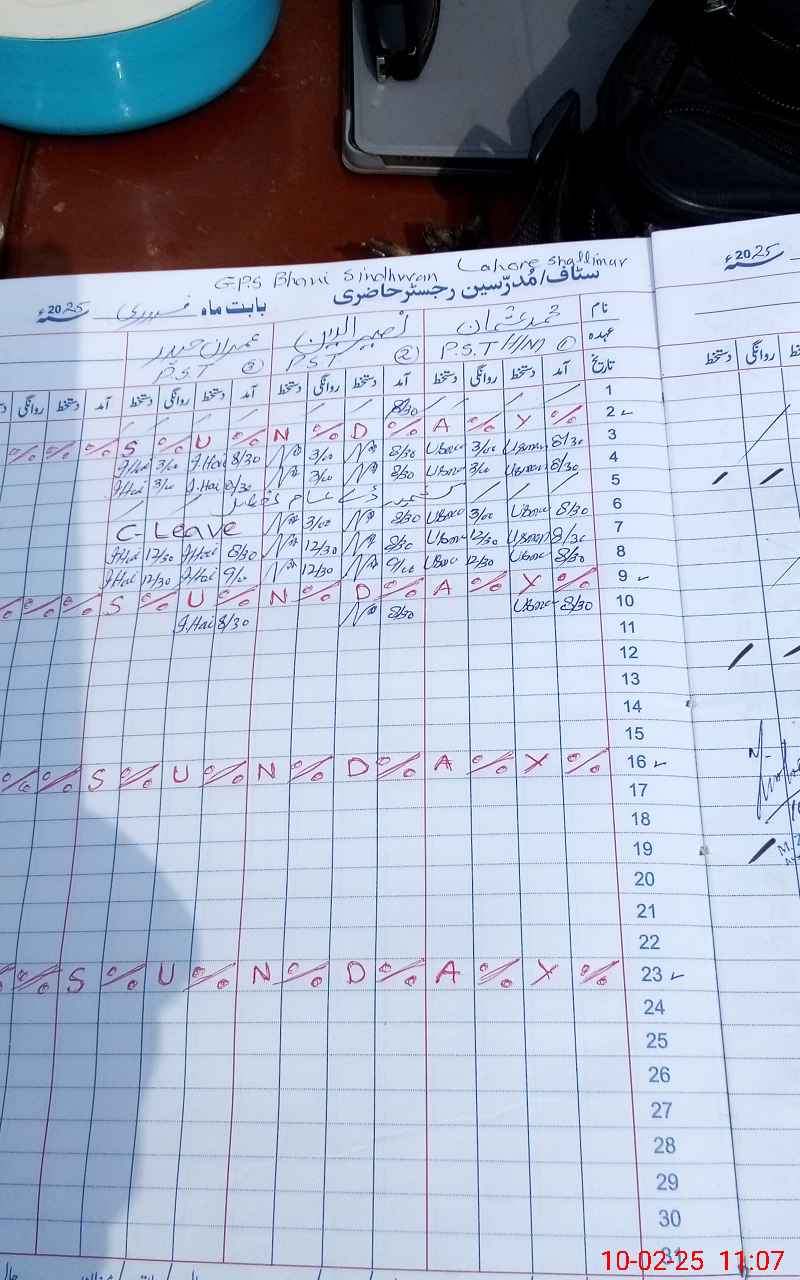 G.P.S Bhani Sindhwan Lahore Shallimar
سٹاف/مُدرّسین رجسٹر حاضری
بابت ماہ فروری 2025ء
2025ء
نام محمد عثمان نصیر الدین عمران حیدر
عہدہ P.S.T H/M ① P.S.T ② P.S.T ③
تاریخ آمد دستخط روانگی دستخط آمد دستخط روانگی دستخط آمد دستخط روانگی دستخط آمد دستخط روانگی
دستخط روانگی
1 8/30
2 S U N D A Y
3 8/30 Usman 3/00 Usman 8/30 3/00 8/30 J.Hai 3/00 J.Hai
4 8/30 Usman 3/00 Usman 8/30 3/00 8/30 J.Hai 3/00 J.Hai
5 کشمیر ڈے عام تعطیل
6 8/30 Usman 3/00 Usman 8/30 3/00 C-Leave
7 8/30 Usman 12/30 Usman 8/30 12/30 8/30 J.Hai 12/30 J.Hai
8 8/30 Usman 12/30 Usman 9/00 12/30 9/00 J.Hai 12/30 J.Hai
9 S U N D A Y
10 8/30 Usman 8/30 8/30 J.Hai
11
12
13
14
15
16 S U N D A Y
17
18
19
20
21
22
23 S U N D A Y
24
25
26
27
28
29
30
31
10-02-25 11:07